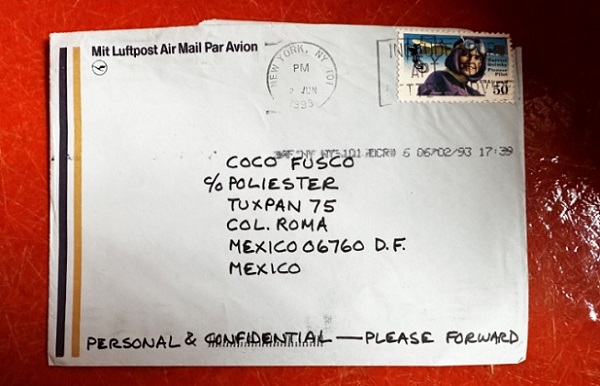 Mit Luftpost Air Mail Par Avion
NEW YORK, NY 101
PM
2 JUN
1993
Harriet
Quimby
Pioneer
Pilot
50
NY 101 6 06/02/93 17:39
COCO FUSCO
c/o POLIESTER
TUXPAN 75
COL. ROMA
MEXICO 06760 D.F.
MEXICO
PERSONAL & CONFIDENTIAL — PLEASE FORWARD